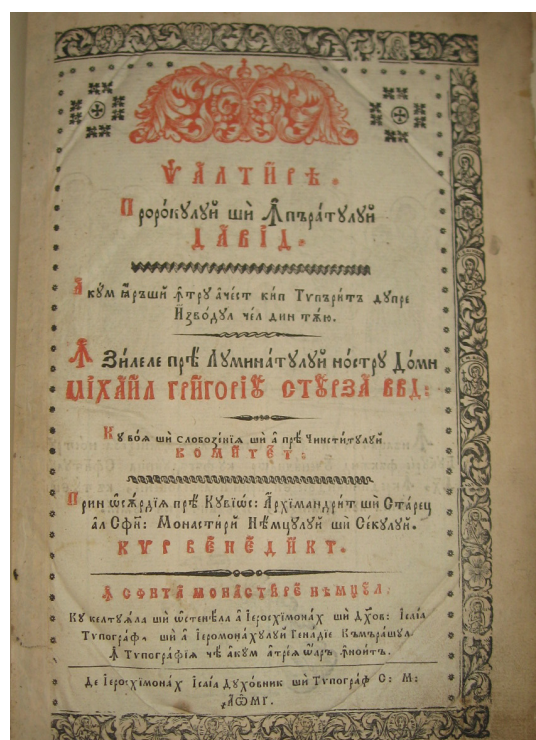 ѰАЛТИ́РѢ.
Проро́кулуй ши Ꙟпъра́тулуй
ДАВІ́Д.
Аку́м ꙟтру аче́ст кип Тѵпъри́т дупре
И҆зво́дул че́л дин тѫ́ю.
Ꙟ Зи́леле прѣ́ Лумина́тулуй но́стру До́мн
МІХАИ́Л ГРИГО́РІУ СТУ́РЗА ВВД:
Ку во́я ши слобозі́нїѧ ши а҆ прѣ́ Чинсти́тулуй
КОМИТЕ́Т:
Прин ѡ҆сѫ́рдїѧ прѣ́ Кувїѡ́с: Архїмандри́т ши Ста́рец
а҆л Сфи́: Монасти́рй Нѣ́мцулуй ши Се́кулуй.
КѴ́Р ВЕНЕДИ́КТ.
Ꙟ СФѪТА МОНАСТИ́РЕ НѢ́МЦУЛ:
Ку келтуѧ́ла ши ѡ҆стенѣ́ла а҆ Іеросхїмона́х ши Дх҃о́в: Ісаі́а
Тѵпогра́ф, ши а҆ Іеромона́хулуй Гена́дїе Къмъра́шул.
Ꙟ Тѵпогра́фїѧ чѣ́ а҆ку́м а҆ тре́ѧ ѡ҆а́ръ ꙟнои́тъ.
Де Іеросхїмона́х Ісаі́а Духо́вник ши Тѵпогра́ф С: М:
҂АѾМГ.